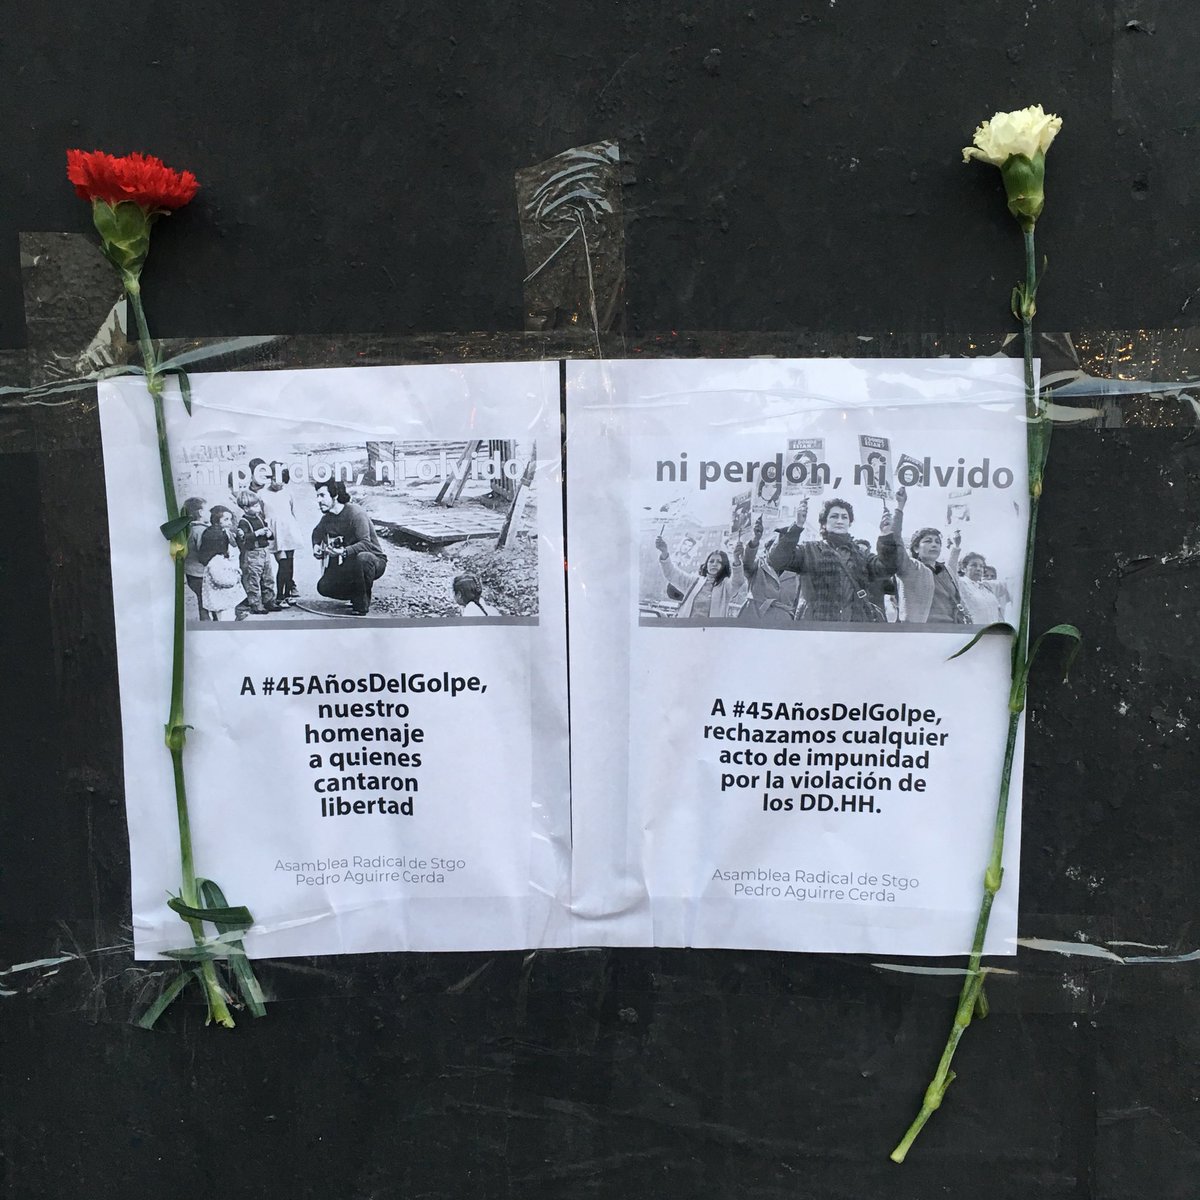 ni perdón, ni olvido
A #45AñosDelGolpe,
nuestro
homenaje
a quienes
cantaron
libertad
Asamblea Radical de Stgo
Pedro Aguirre Cerda
ni perdón, ni olvido
A #45AñosDelGolpe,
rechazamos cualquier
acto de impunidad
por la violación de
los DD.HH.
Asamblea Radical de Stgo
Pedro Aguirre Cerda